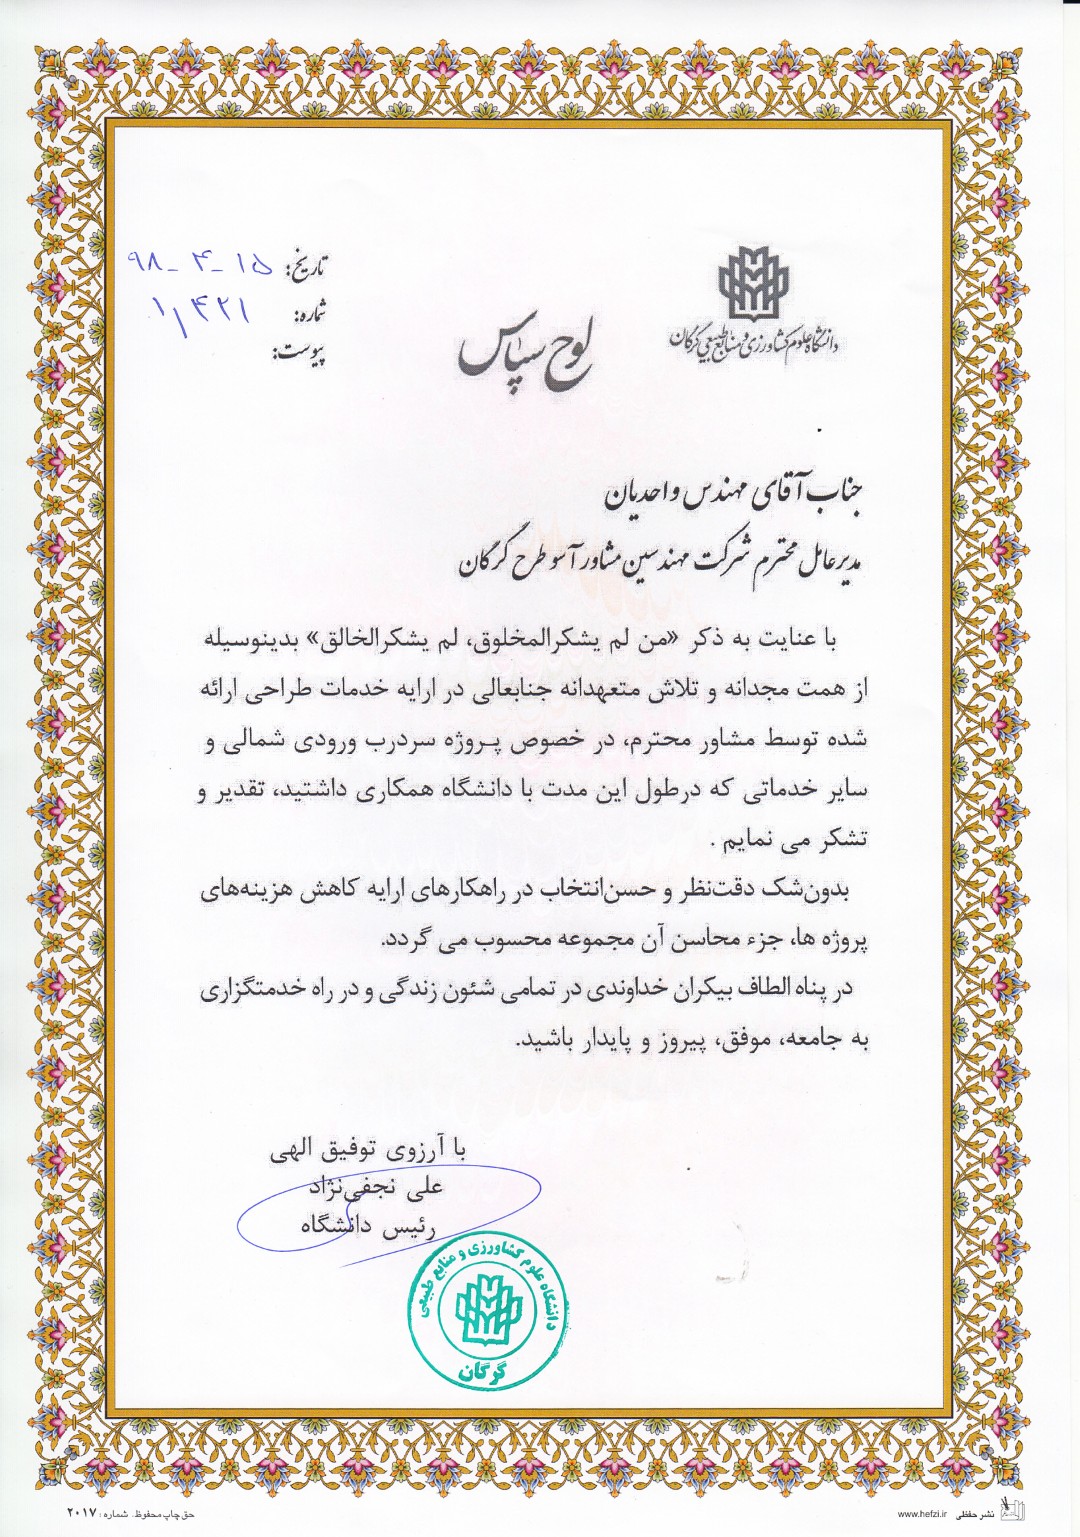 دانشگاه علوم کشاورزی و منابع طبیعی گرگان
تاریخ: ۹۸-۴-۱۵
شماره: ۱/۴۲۱
پیوست:
لوح سپاس
جناب آقای مهندس واحدیان
مدیرعامل محترم شرکت مهندسین مشاور آسو طرح گرگان
با عنایت به ذکر «من لم یشکرالمخلوق، لم یشکرالخالق» بدینوسیله
از همت مجدانه و تلاش متعهدانه جنابعالی در ارایه خدمات طراحی ارائه
شده توسط مشاور محترم، در خصوص پروژه سردرب ورودی شمالی و
سایر خدماتی که درطول این مدت با دانشگاه همکاری داشتید، تقدیر و
تشکر می نمایم .
بدون‌شک دقت‌نظر و حسن‌انتخاب در راهکارهای ارایه کاهش هزینه‌های
پروژه ها، جزء محاسن آن مجموعه محسوب می گردد.
در پناه الطاف بیکران خداوندی در تمامی شئون زندگی و در راه خدمتگزاری
به جامعه، موفق، پیروز و پایدار باشید.
با آرزوی توفیق الهی
علی نجفی‌نژاد
رئیس دانشگاه
دانشگاه علوم کشاورزی و منابع طبیعی
گرگان
نشر حفظی www.hefzi.ir
حق چاپ محفوظ. شماره: ۲۰۱۷